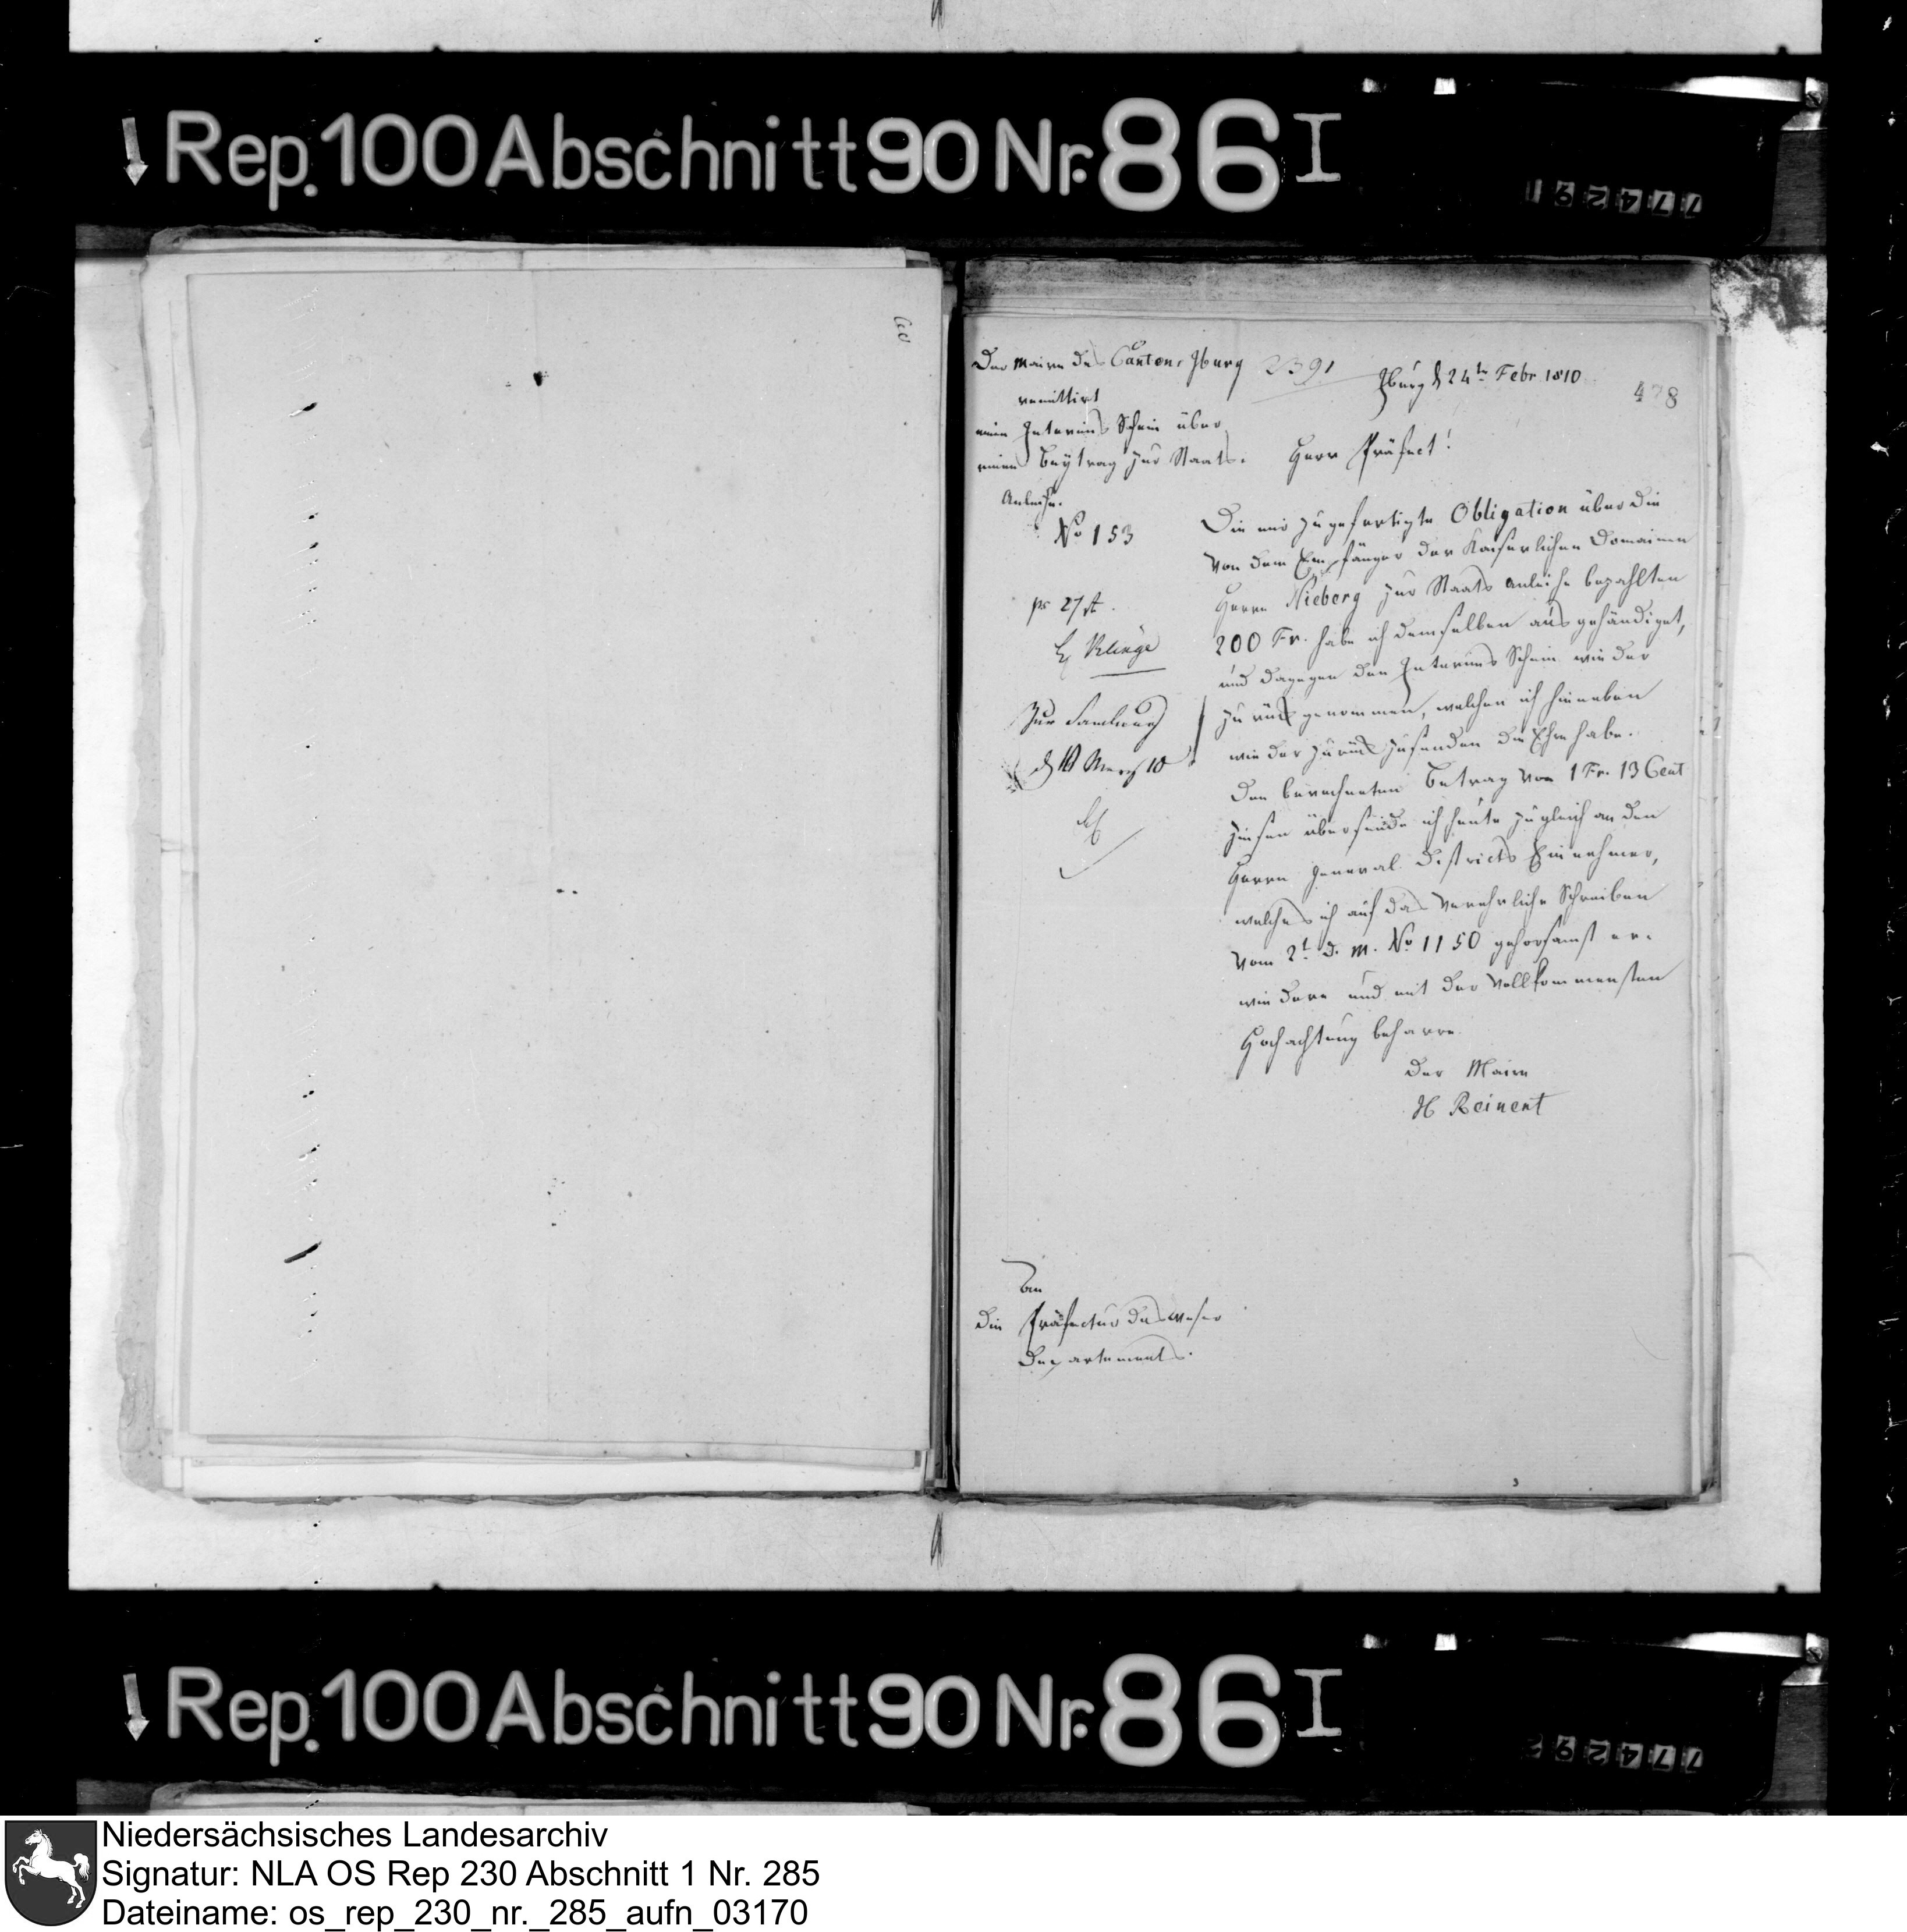 Rep. 100 Abschnitt 90 Nr. 86 I
774291
Der Maire des Cantons Iburg
remittirt
einen Interims Schein über
einen Beytrag zur Staats-
Anleihe.
No 153
2391
Iburg d 24ten Febr. 1810
478
Herr Präfect!
Die mir zugefertigte Obligation über die
von dem Empfänger der Kaiserlichen Domainen
Herrn Nieberg zur Staats anleihe bezahlten
200 Fr. habe ich demselben ausgehändiget,
und dagegen den Interims Schein wieder
zurück genommen, welchen ich hieneben
wieder zurück zusenden die Ehre habe.
Den berechneten Betrag von 1 Fr. 13 Cent
Zinsen übersende ich heute zugleich an den
Herrn General Districts Einnehmer,
welches ich auf das verehrliche Schreiben
vom 2t d. M. No 1150 gehorsamst er-
wiedere und mit der vollkommensten
Hochachtung beharre
Der Maire
H Reinert
pr 27
Klinge
Zur Samlung
d Merz 10
An
die Präfectur des Weser
Departements.
Rep. 100 Abschnitt 90 Nr. 86 I
774292
Niedersächsisches Landesarchiv
Signatur: NLA OS Rep 230 Abschnitt 1 Nr. 285
Dateiname: os_rep_230_nr._285_aufn_03170